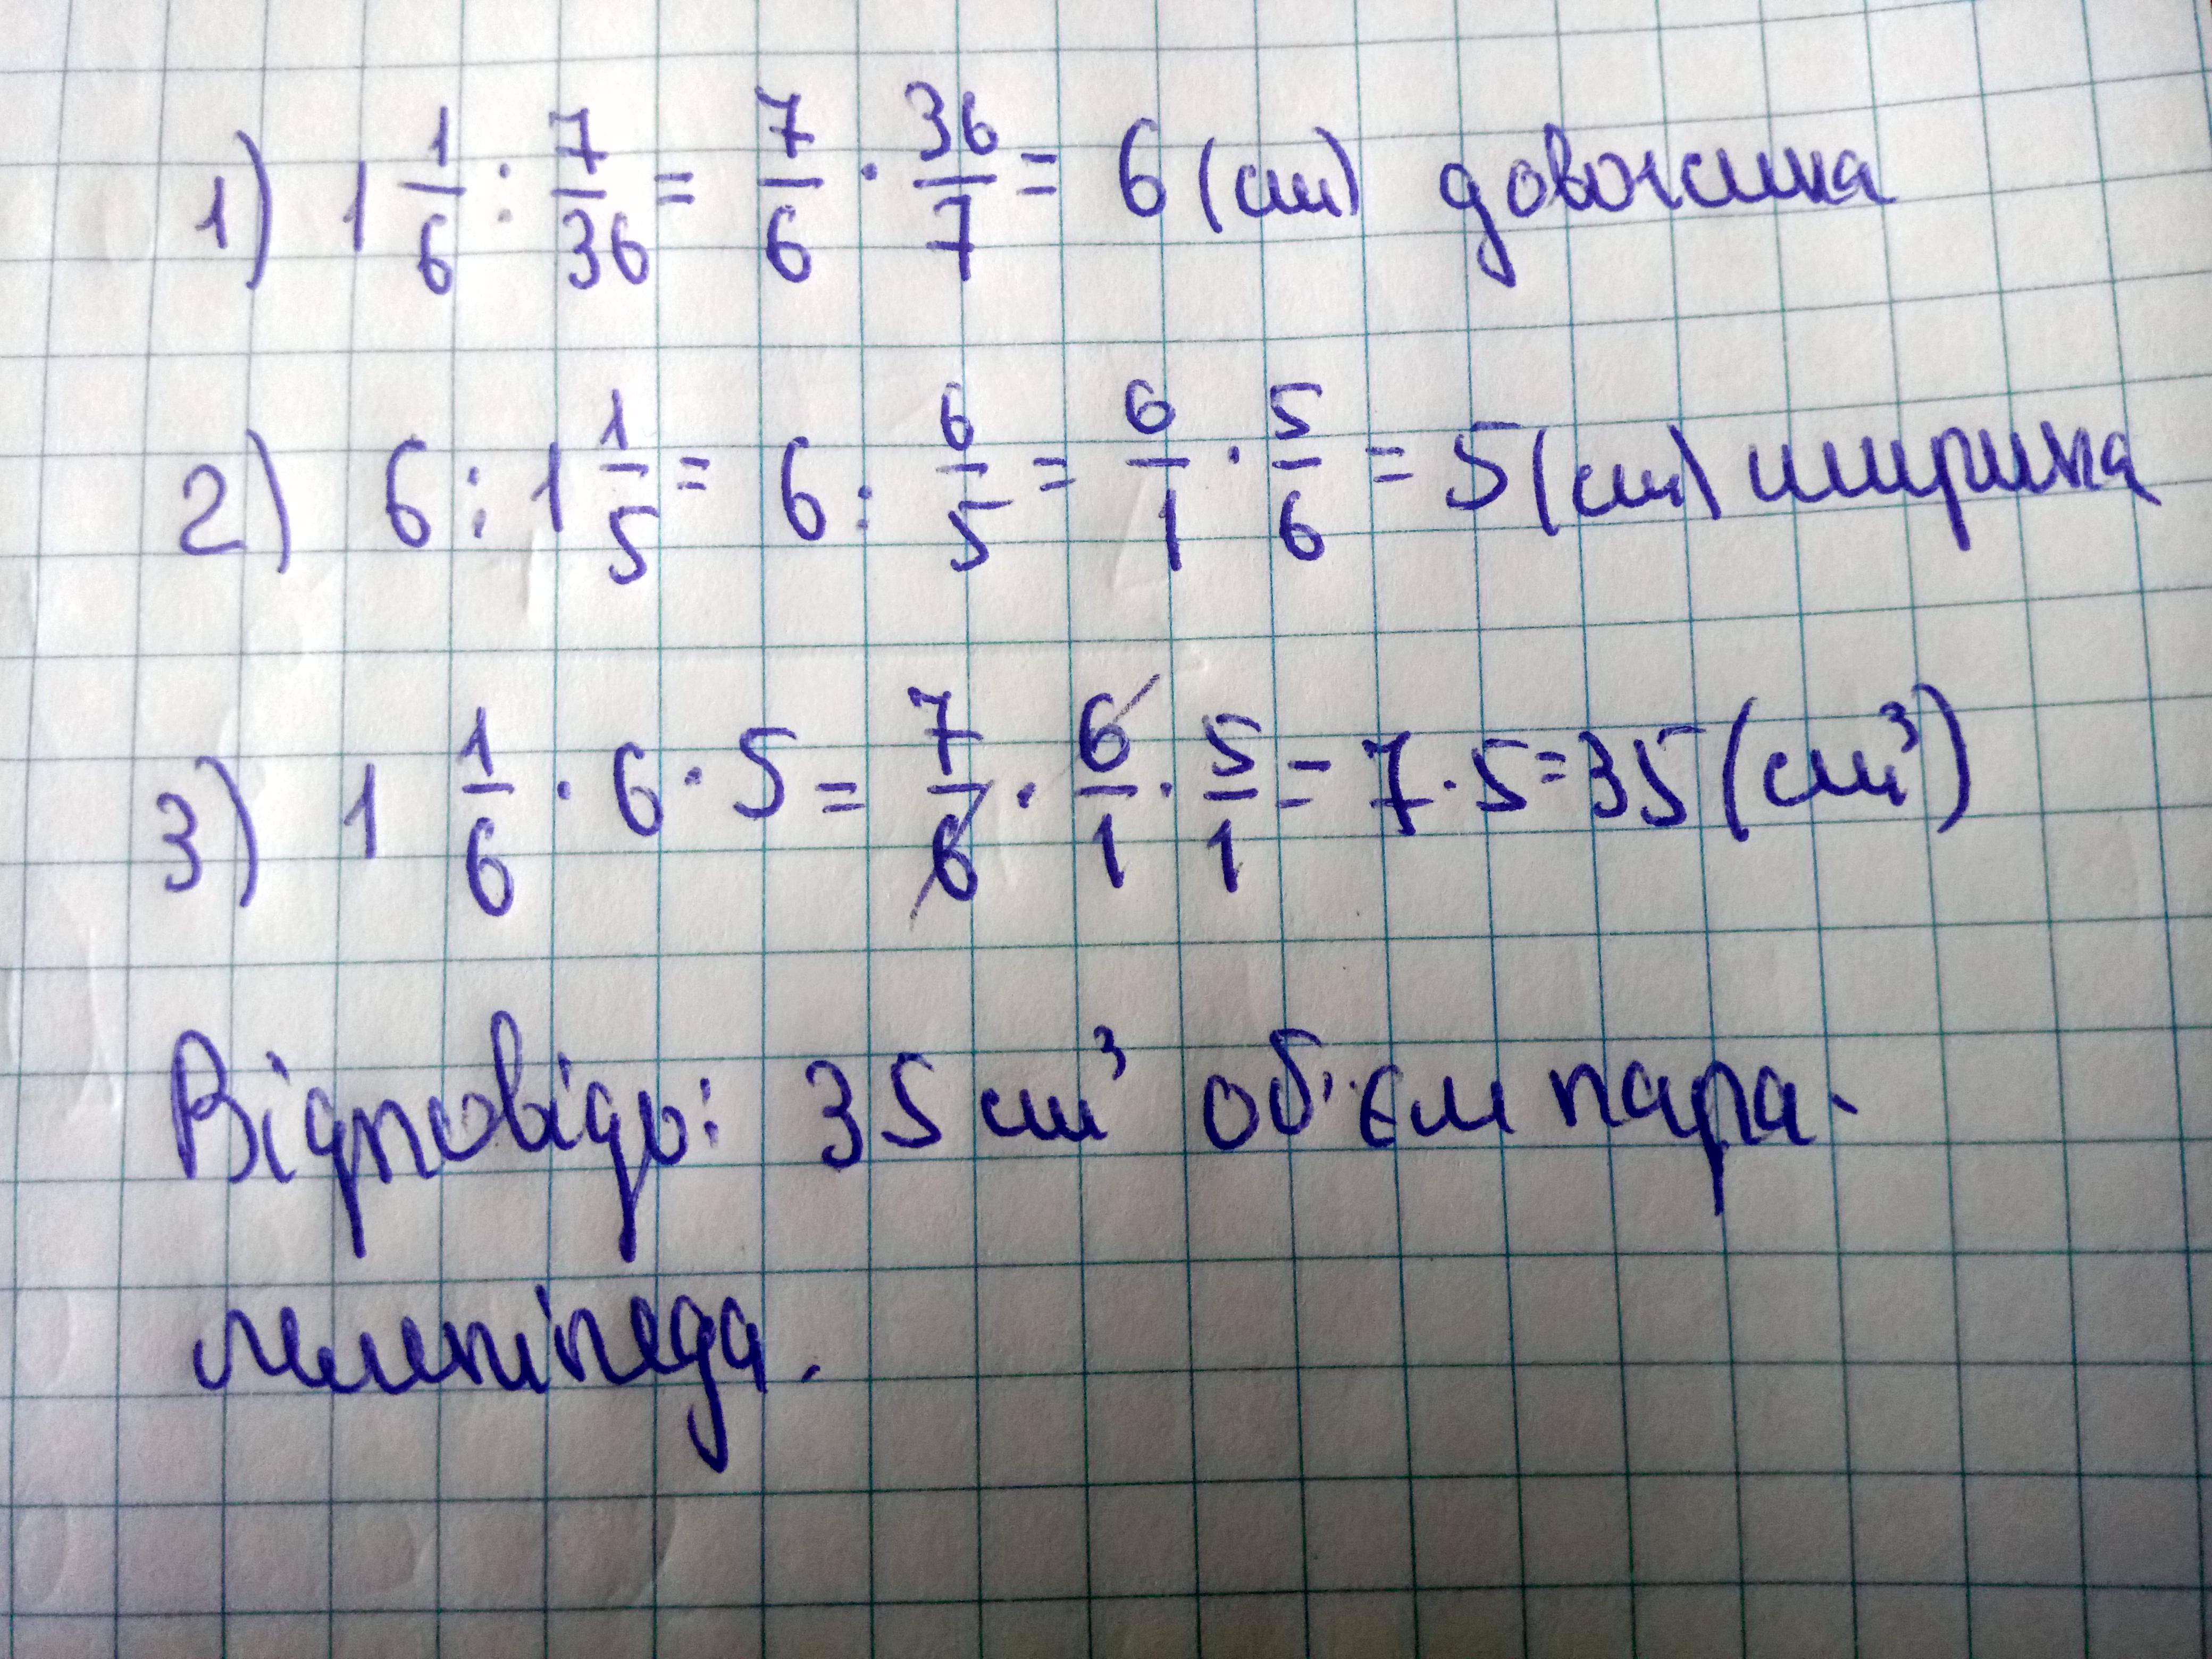 1) 1 1/6 : 7/36 = 7/6 · 36/7 = 6 (см) довжина
2) 6 : 1 1/5 = 6 : 6/5 = 6/1 · 5/6 = 5 (см) ширина
3) 1 1/6 · 6 · 5 = 7/6 · 6/1 · 5/1 = 7 · 5 = 35 (см³)
Відповідь: 35 см³ об'єм пара-
лелепіпеда.